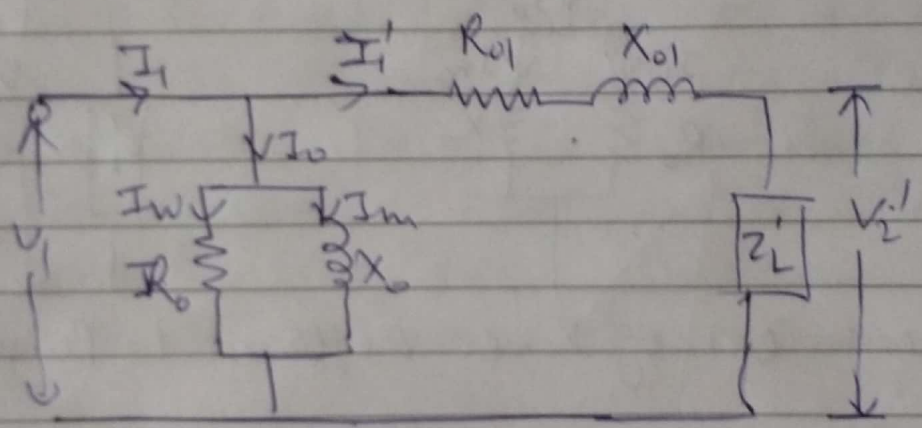 I₁ I₁' R₀₁ X₀₁
I₀
Iw Im
V₁ R₀ X₀ Z'L V₂'